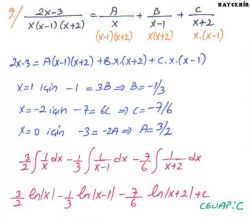 BAYCEBİR
9/ 2x-3 / x(x-1)(x+2) = A/x + B/x-1 + C/x+2
(x-1)(x+2) x(x+2) x.(x-1)
2x-3 = A(x-1)(x+2)+B.x.(x+2)+C.x.(x-1)
x=1 için -1 = 3B ⇒ B=-1/3
x=-2 için -7=6C ⇒ C=-7/6
x=0 için -3=-2A ⇒ A=3/2
3/2 ∫ 1/x dx - 1/3 ∫ 1/x-1 dx - 7/6 ∫ 1/x+2 dx
3/2 ln|x| - 1/3 ln|x-1| - 7/6 ln|x+2| + c
CEVAP: C